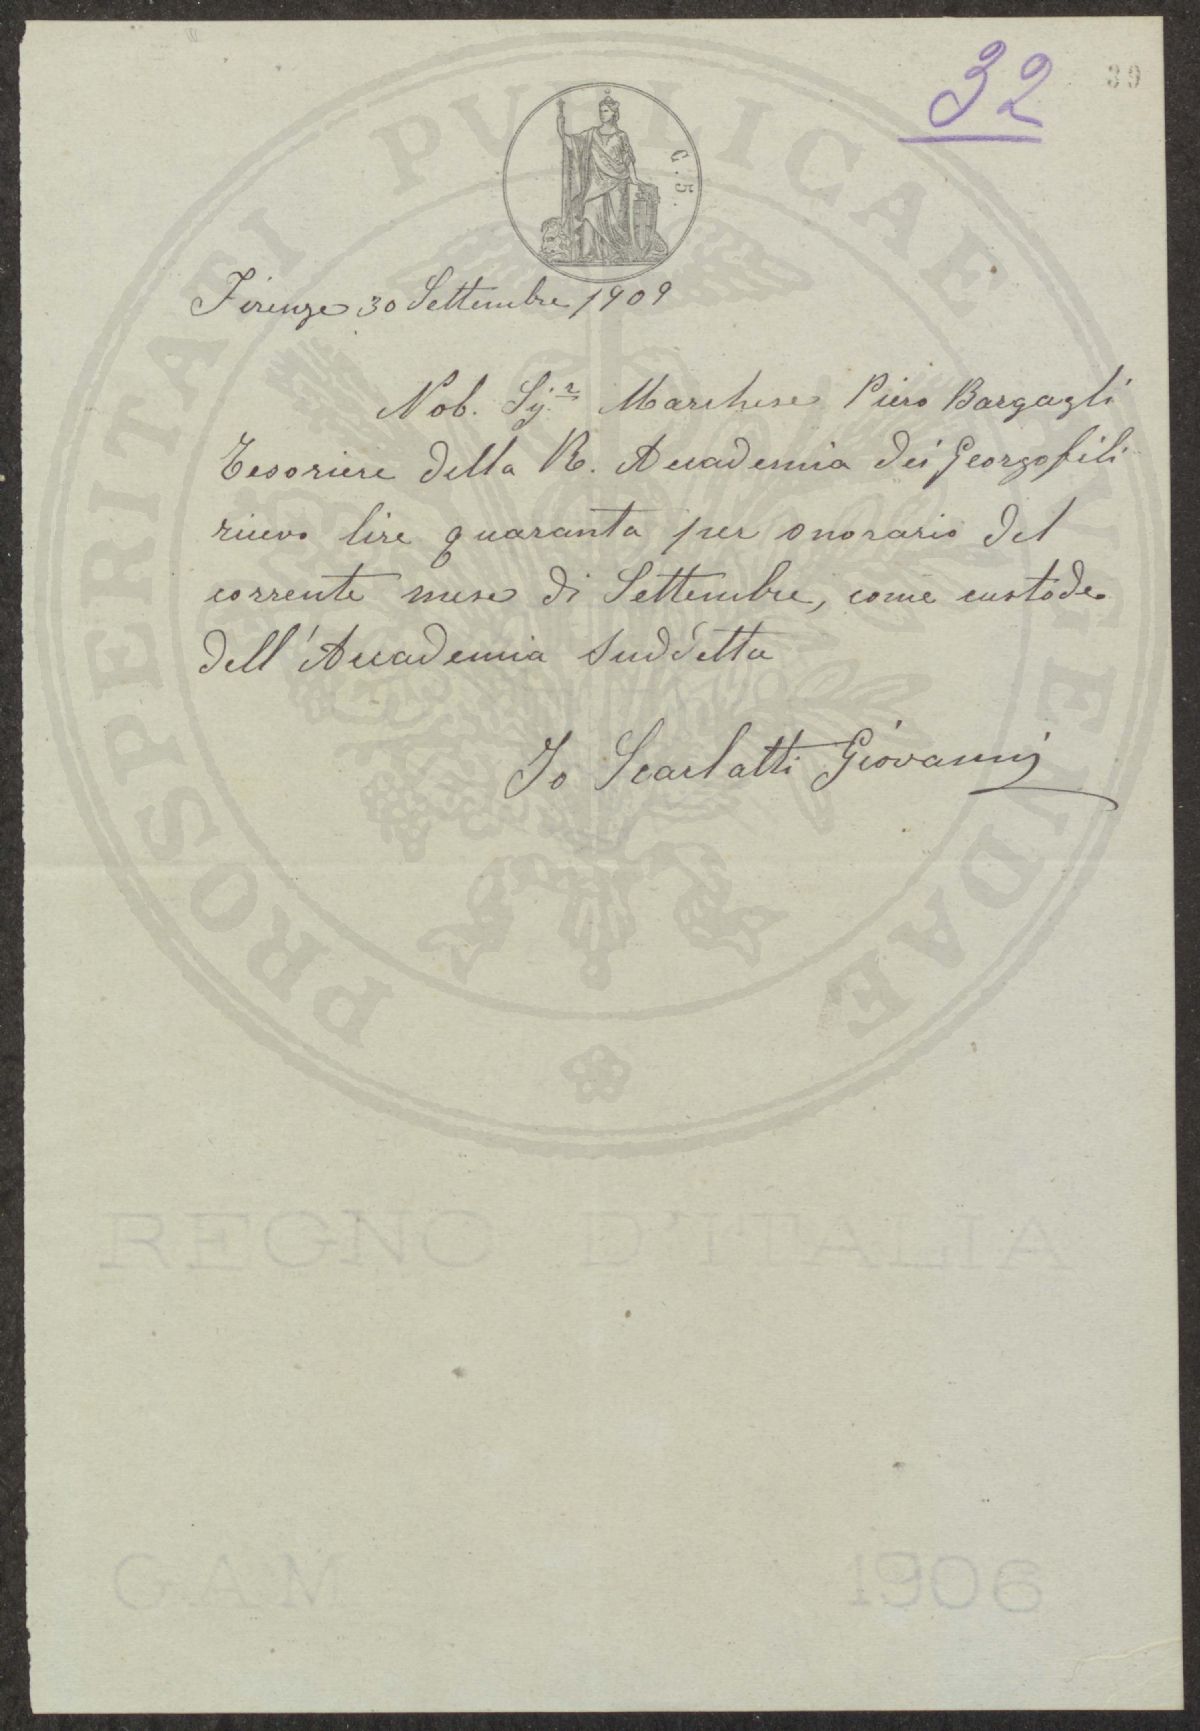 32
39
PROSPERITATI PUBLICAE AUGENDAE
C. 5.
Firenze 30 Settembre 1909
Nob. Sig.r Marchese Piero Bargagli
Tesoriere della R. Accademia dei Georgofili
ricevo lire quaranta per onorario del
corrente mese di Settembre, come custode
dell'Accademia suddetta
Io Scarlatti Giovanni
REGNO D'ITALIA
GAM 1906